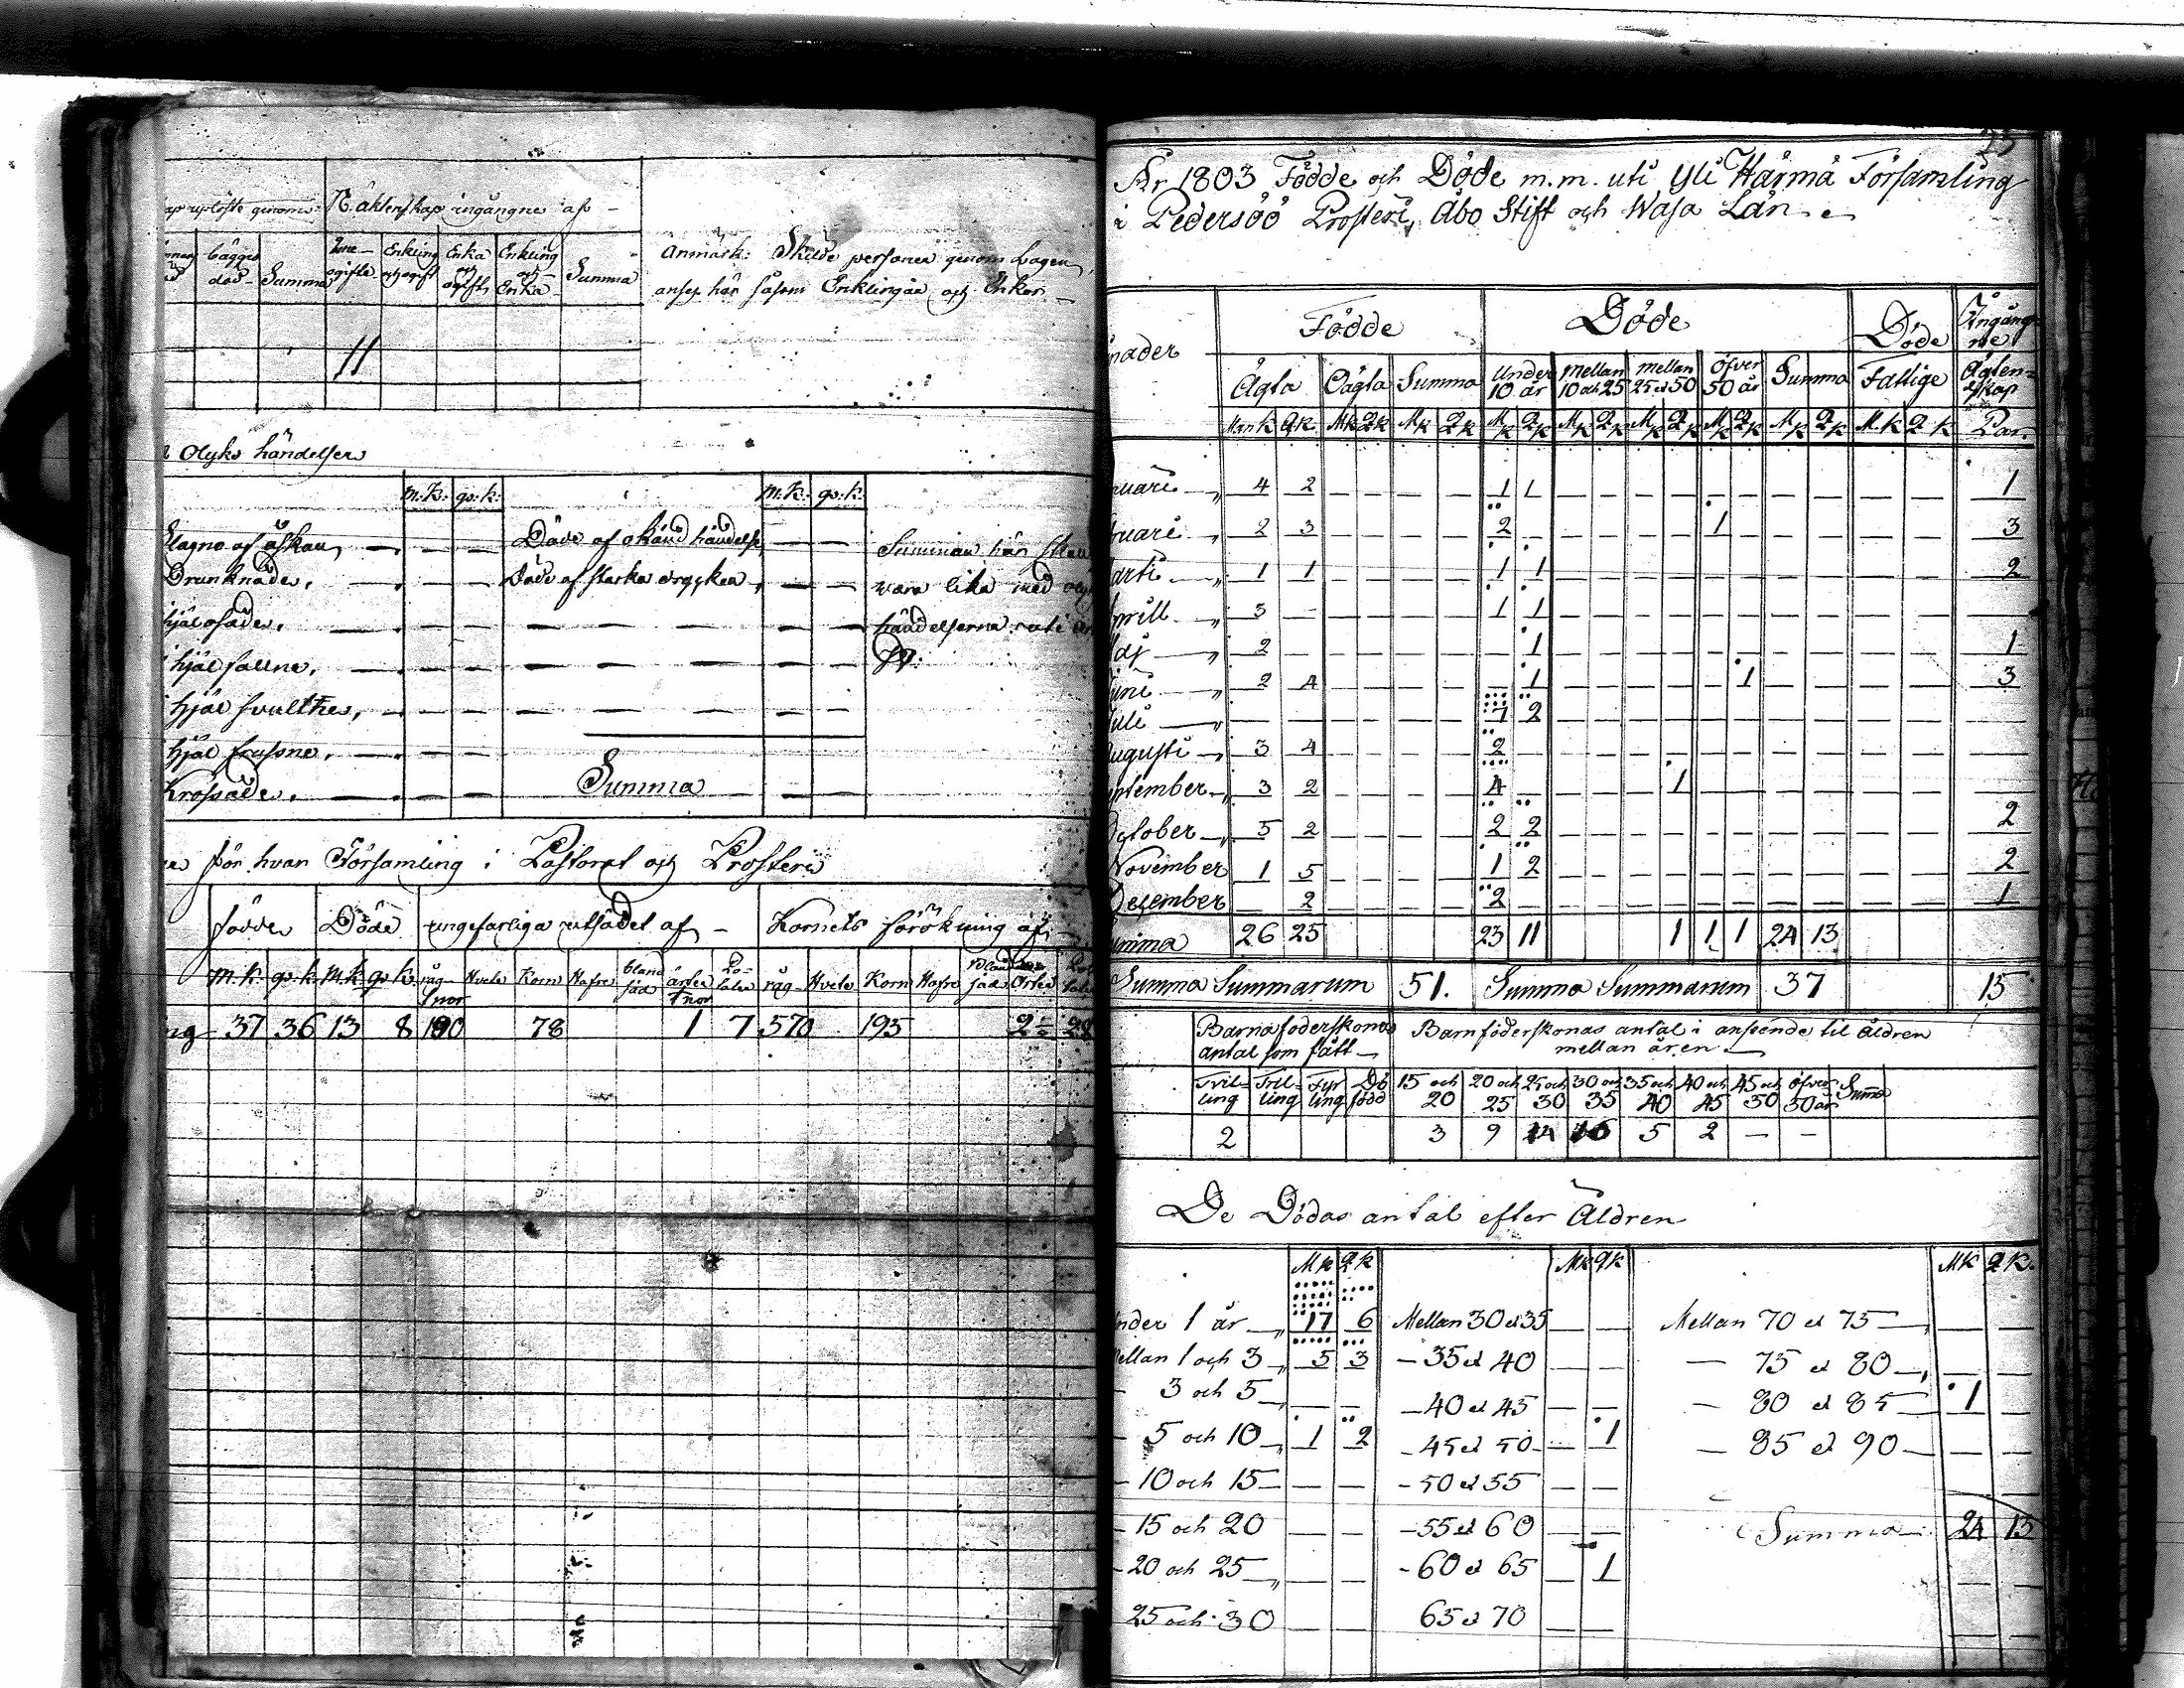 N. äktenskap ingångne af
bägges död Summa ogifte Enkling och ogift Enka och ogift Enkling och Enka Summa
Anmärk: Skilde personer genom Lagen,
anses här såsom Enklingar och Enkor.
11
Olyks händelser
m.k. qv.k. m.k. qv.k.
Slagne af åskan, — — — Döde af okänd händelse, — —
Drunknade, — — — Döde af starka drycker, — —
ihjäl fallne, — — —
hjäl svultne, — — —
hjäl frusne, — — —
Krossade, — — — Summa — —
Summan här skall
vara lika med
händelserna uti
för hvar Församling i Pastorat och Prosteri
födde Döde ungefärliga utsädet af Kornets förökning af
m.k. qv.k. m.k. qv.k. råg Hvete Korn Hafre bland säd ärter råg Hvete Korn Hafre säd
37 36 13 8 100 78 1 7 570 195
25
År 1803 Födde och Döde m.m. uti Yli Härmä Församling
i Pedersöö Prosteri, Åbo Stift och Wasa Län.
Födde Döde Döde Ingångne
Ägta Oägta Summa Under 10 år Mellan 10 och 25 Mellan 25 et 50 Öfver 50 år Summa Fattige Ägtenskap
Mank Qk Mk Qk Mk Qk Mk Qk Mk Qk Mk Qk Mk Qk Mk Qk Mk Qk Par.
nuari 4 2 1 1 1
bruari 2 3 2 1 3
arti 1 1 1 1 2
prill 3 — 1 1 —
Maj 2 — 1 1
Juni 2 4 1 1 3
Juli — — 7 2 —
Augusti 3 4 2 —
ptember 3 2 4 1
October 5 2 2 2 2
November 1 5 1 2 2
December — 2 2 1
Summa 26 25 23 11 1 1 1 24 13
Summa Summarum 51. Summa Summarum 37 15
Barnaföderskonas antal som fått Barnföderskonas antal i anseende til åldren mellan åren
Tvilling Trilling Fyrling Dödfödd 15 och 20 20 och 25 25 och 30 30 och 35 35 och 40 40 och 45 45 och 50 öfver 50 år Summa
2 3 9 14 16 5 2 — —
De Dödas antal efter Åldren
Mk Qk Mk Qk Mk Qk.
nder 1 år 17 6 Mellan 30 et 35 — — Mellan 70 et 75 — —
ellan 1 och 3 5 3 — 35 et 40 — — — 75 et 80 — —
3 och 5 — — — 40 et 45 — — — 80 et 85 1 —
5 och 10 1 2 — 45 et 50 — 1 — 85 et 90 — —
10 och 15 — — — 50 et 55 — —
15 och 20 — — — 55 et 60 — — Summa 24 13
20 och 25 — — — 60 et 65 — 1
25 och 30 — — 65 et 70 — —